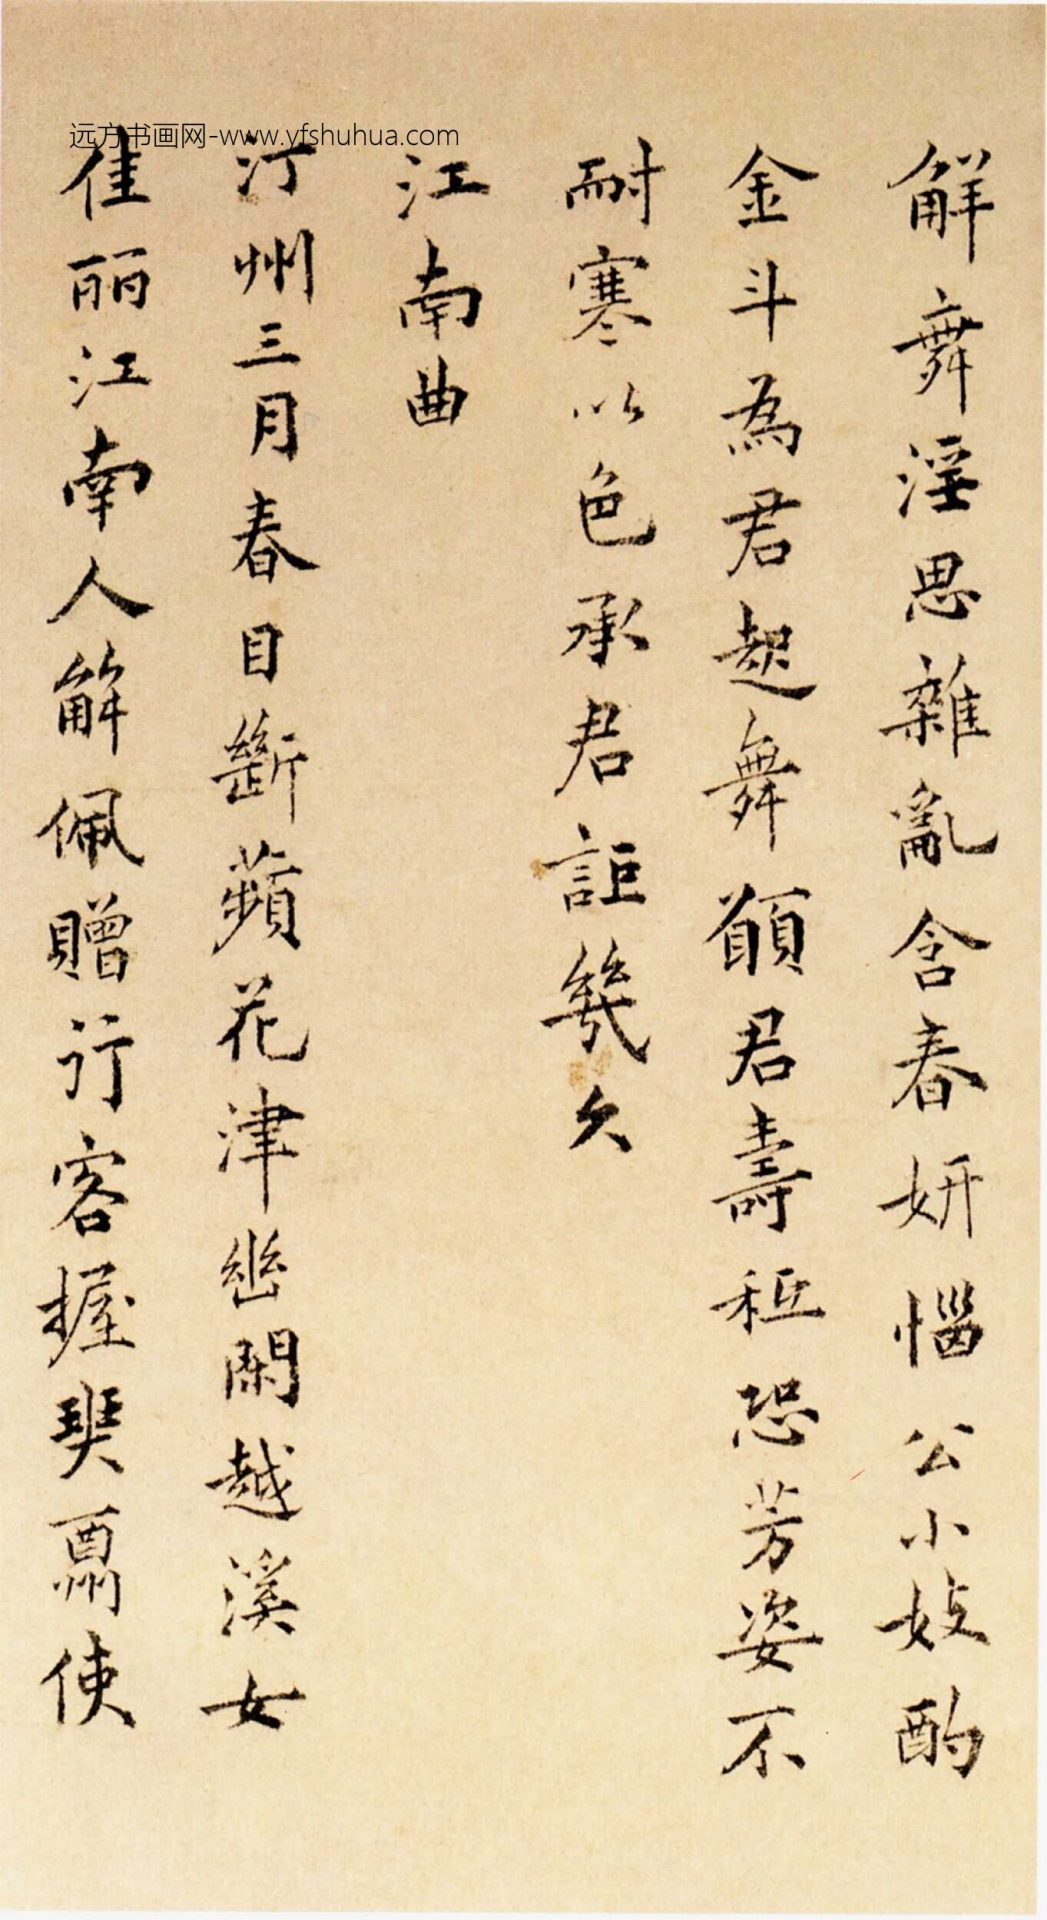 远方书画网-www.yfshuhua.com
解舞淫思雜亂含春妍惱公小妓酌
金斗為君起舞願君壽秖恐芳姿不
耐寒以色承君詎幾久
江南曲
汀州三月春目斷蘋花津幽閑越溪女
佳丽江南人解佩贈行客握使